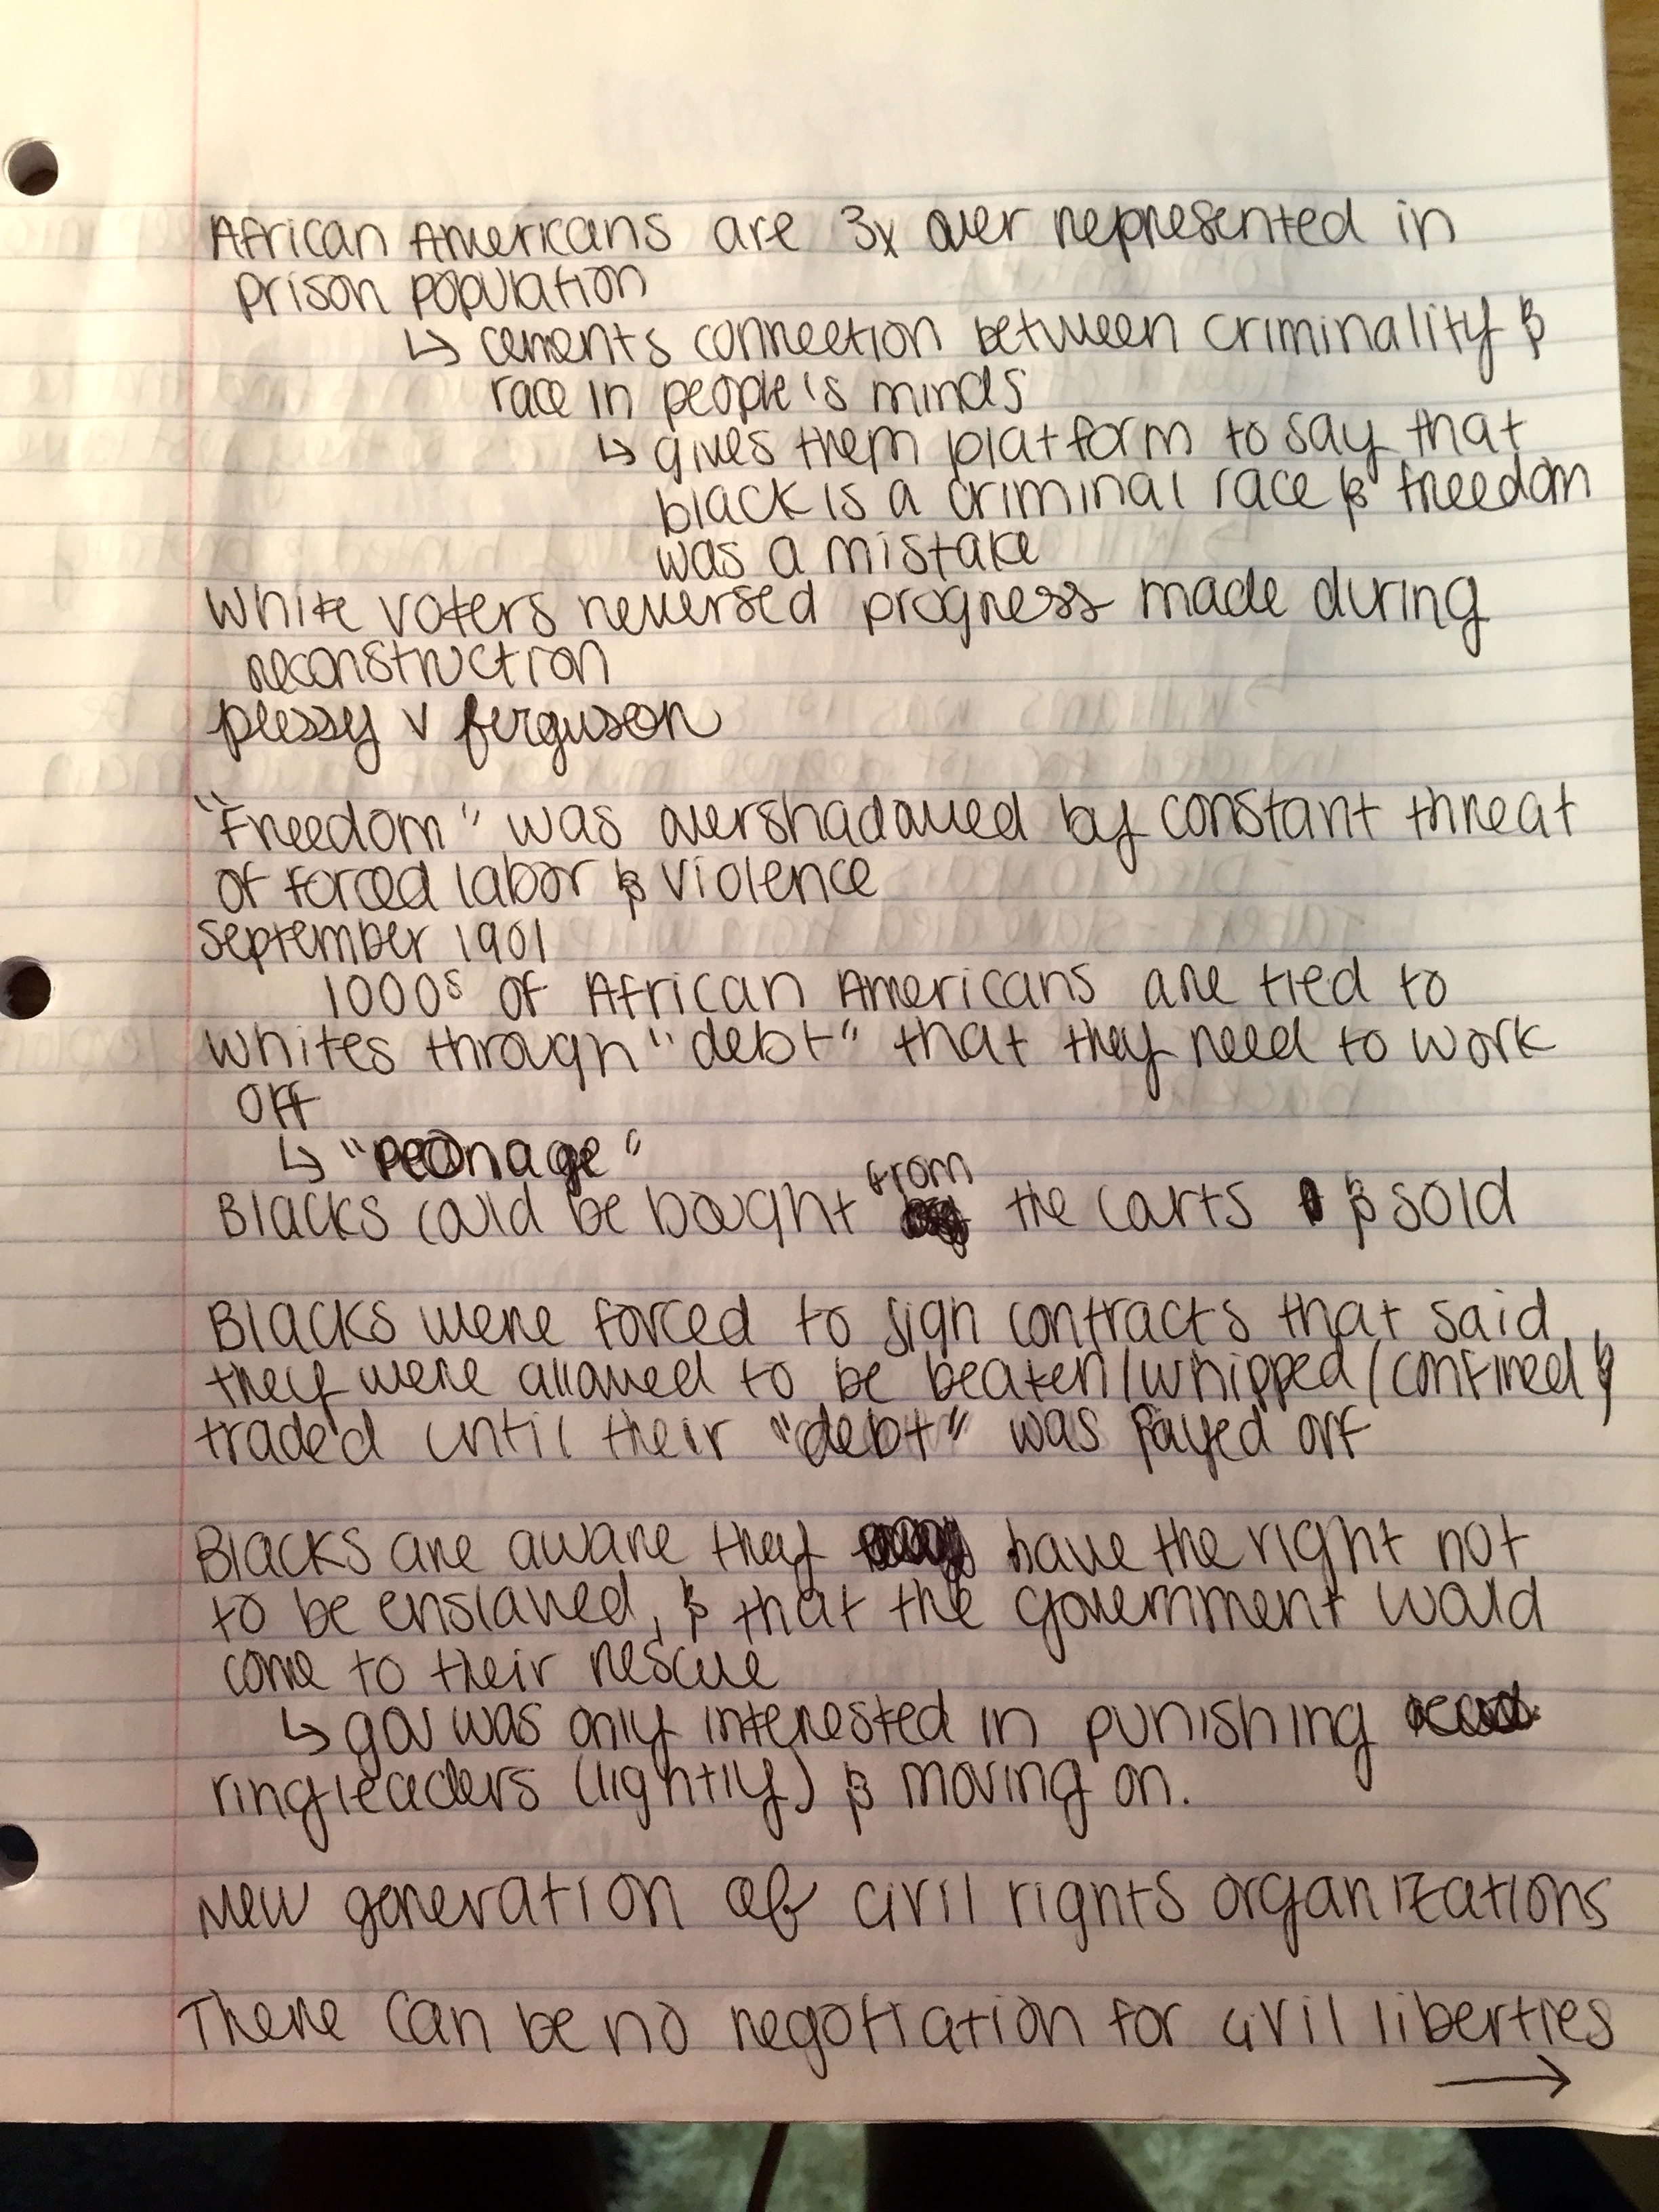 African Americans are 3x over represented in
prison population
↳ cements connection between criminality &
race in people's minds
↳ gives them platform to say that
black is a criminal race & freedom
was a mistake
White voters reversed progress made during
reconstruction
plessy v ferguson
"Freedom" was overshadowed by constant threat
of forced labor & violence
September 1901
1000s of African Americans are tied to
whites through "debt" that they need to work
off
↳ "peonage"
Blacks could be bought from the carts & sold
Blacks were forced to sign contracts that said
they were allowed to be beaten/whipped/confined &
traded until their "debt" was payed off
Blacks are aware they have the right not
to be enslaved, & that the government would
come to their rescue
↳ gov was only interested in punishing
ringleaders (lightly) & moving on.
New generation of civil rights organizations
There can be no negotiation for civil liberties
→